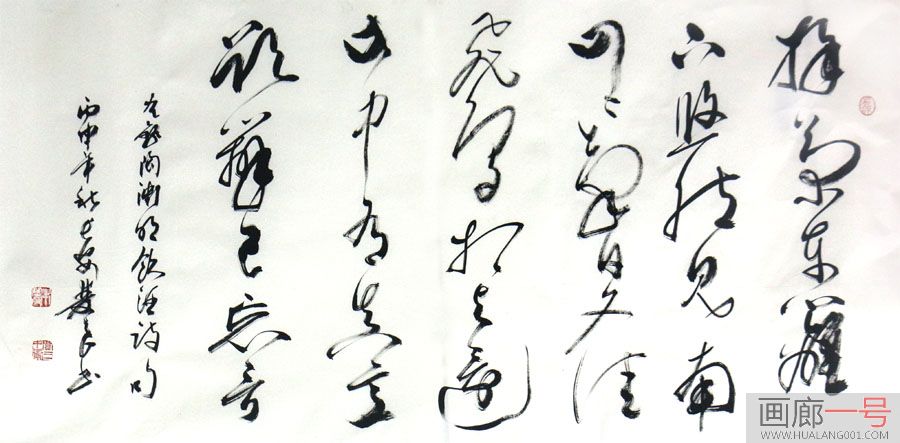 採菊東籬
下悠然見南
山〻氣日夕佳
飛鳥相與還
此中有真意
欲辯已忘言
右錄陶淵明飲酒詩句
丙申年秋長安書
画廊一号
WWW.HUALANG001.COM